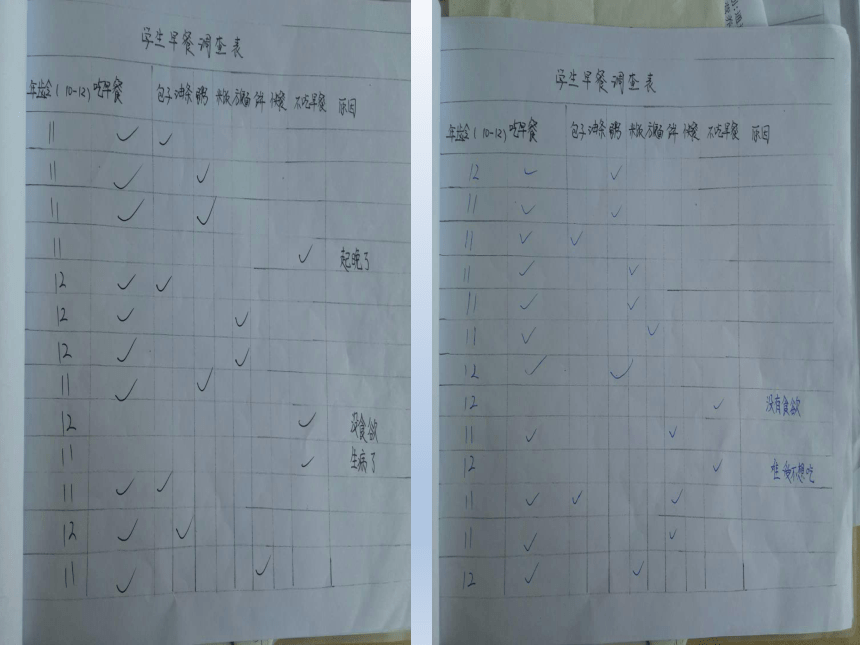 学生早餐调查表
年龄(10-12) 吃早餐 包子 油条 粥 米饭 方便面 饼 外餐 不吃早餐 原因
11 ✓ ✓
11 ✓ ✓
11 ✓ ✓
11 ✓ 起晚了
12 ✓ ✓
12 ✓ ✓
12 ✓ ✓
11 ✓ ✓
12 ✓ 没食欲
11 ✓ 生病了
11 ✓ ✓
12 ✓ ✓
11 ✓ ✓
学生早餐调查表
年龄(10-12) 吃早餐 包子 油条 粥 米饭 饼 不吃早餐 原因
12 ✓ ✓
11 ✓ ✓
11 ✓ ✓
11 ✓ ✓
11 ✓ ✓
11 ✓ ✓
12 ✓ ✓
12 ✓ 没有食欲
11 ✓ ✓
12 ✓ 不想吃
11 ✓ ✓ ✓
11 ✓ ✓
12 ✓ ✓